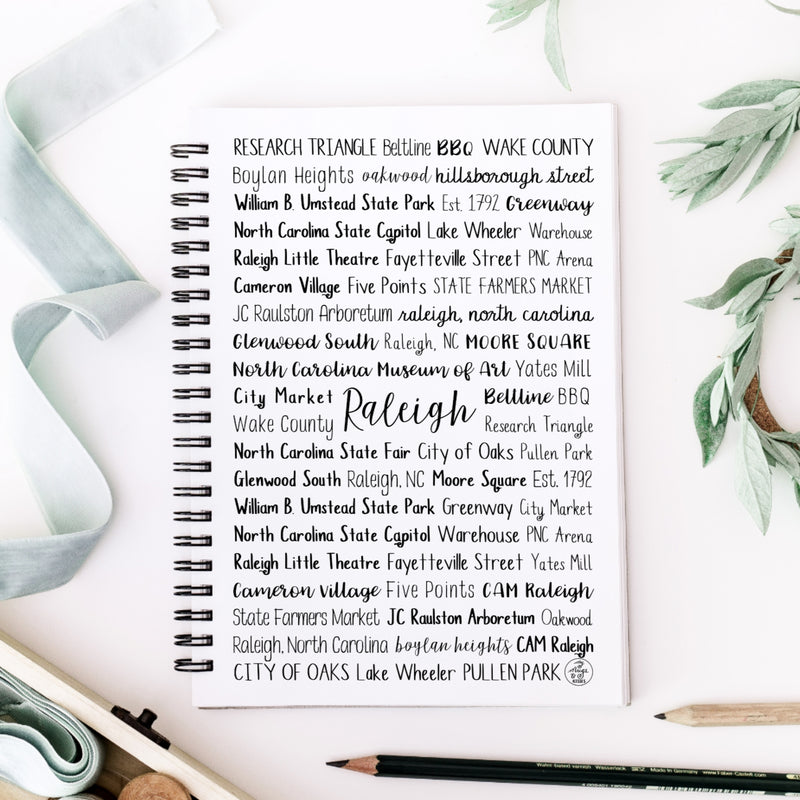 RESEARCH TRIANGLE Beltline BBQ WAKE COUNTY
Boylan Heights oakwood hillsborough street
William B. Umstead State Park Est. 1792 Greenway
North Carolina State Capitol Lake Wheeler Warehouse
Raleigh Little Theatre Fayetteville Street PNC Arena
Cameron Village Five Points STATE FARMERS MARKET
JC Raulston Arboretum raleigh, north carolina
Glenwood South Raleigh, NC MOORE SQUARE
North Carolina Museum of Art Yates Mill
City Market Raleigh Beltline BBQ
Wake County Research Triangle
North Carolina State Fair City of Oaks Pullen Park
Glenwood South Raleigh, NC Moore Square Est. 1792
William B. Umstead State Park Greenway City Market
North Carolina State Capitol Warehouse PNC Arena
Raleigh Little Theatre Fayetteville Street Yates Mill
Cameron Village Five Points CAM Raleigh
State Farmers Market JC Raulston Arboretum Oakwood
Raleigh, North Carolina boylan heights CAM Raleigh
CITY OF OAKS Lake Wheeler PULLEN PARK
Water-based varnish Made in Germany www.Faber-Castell.com